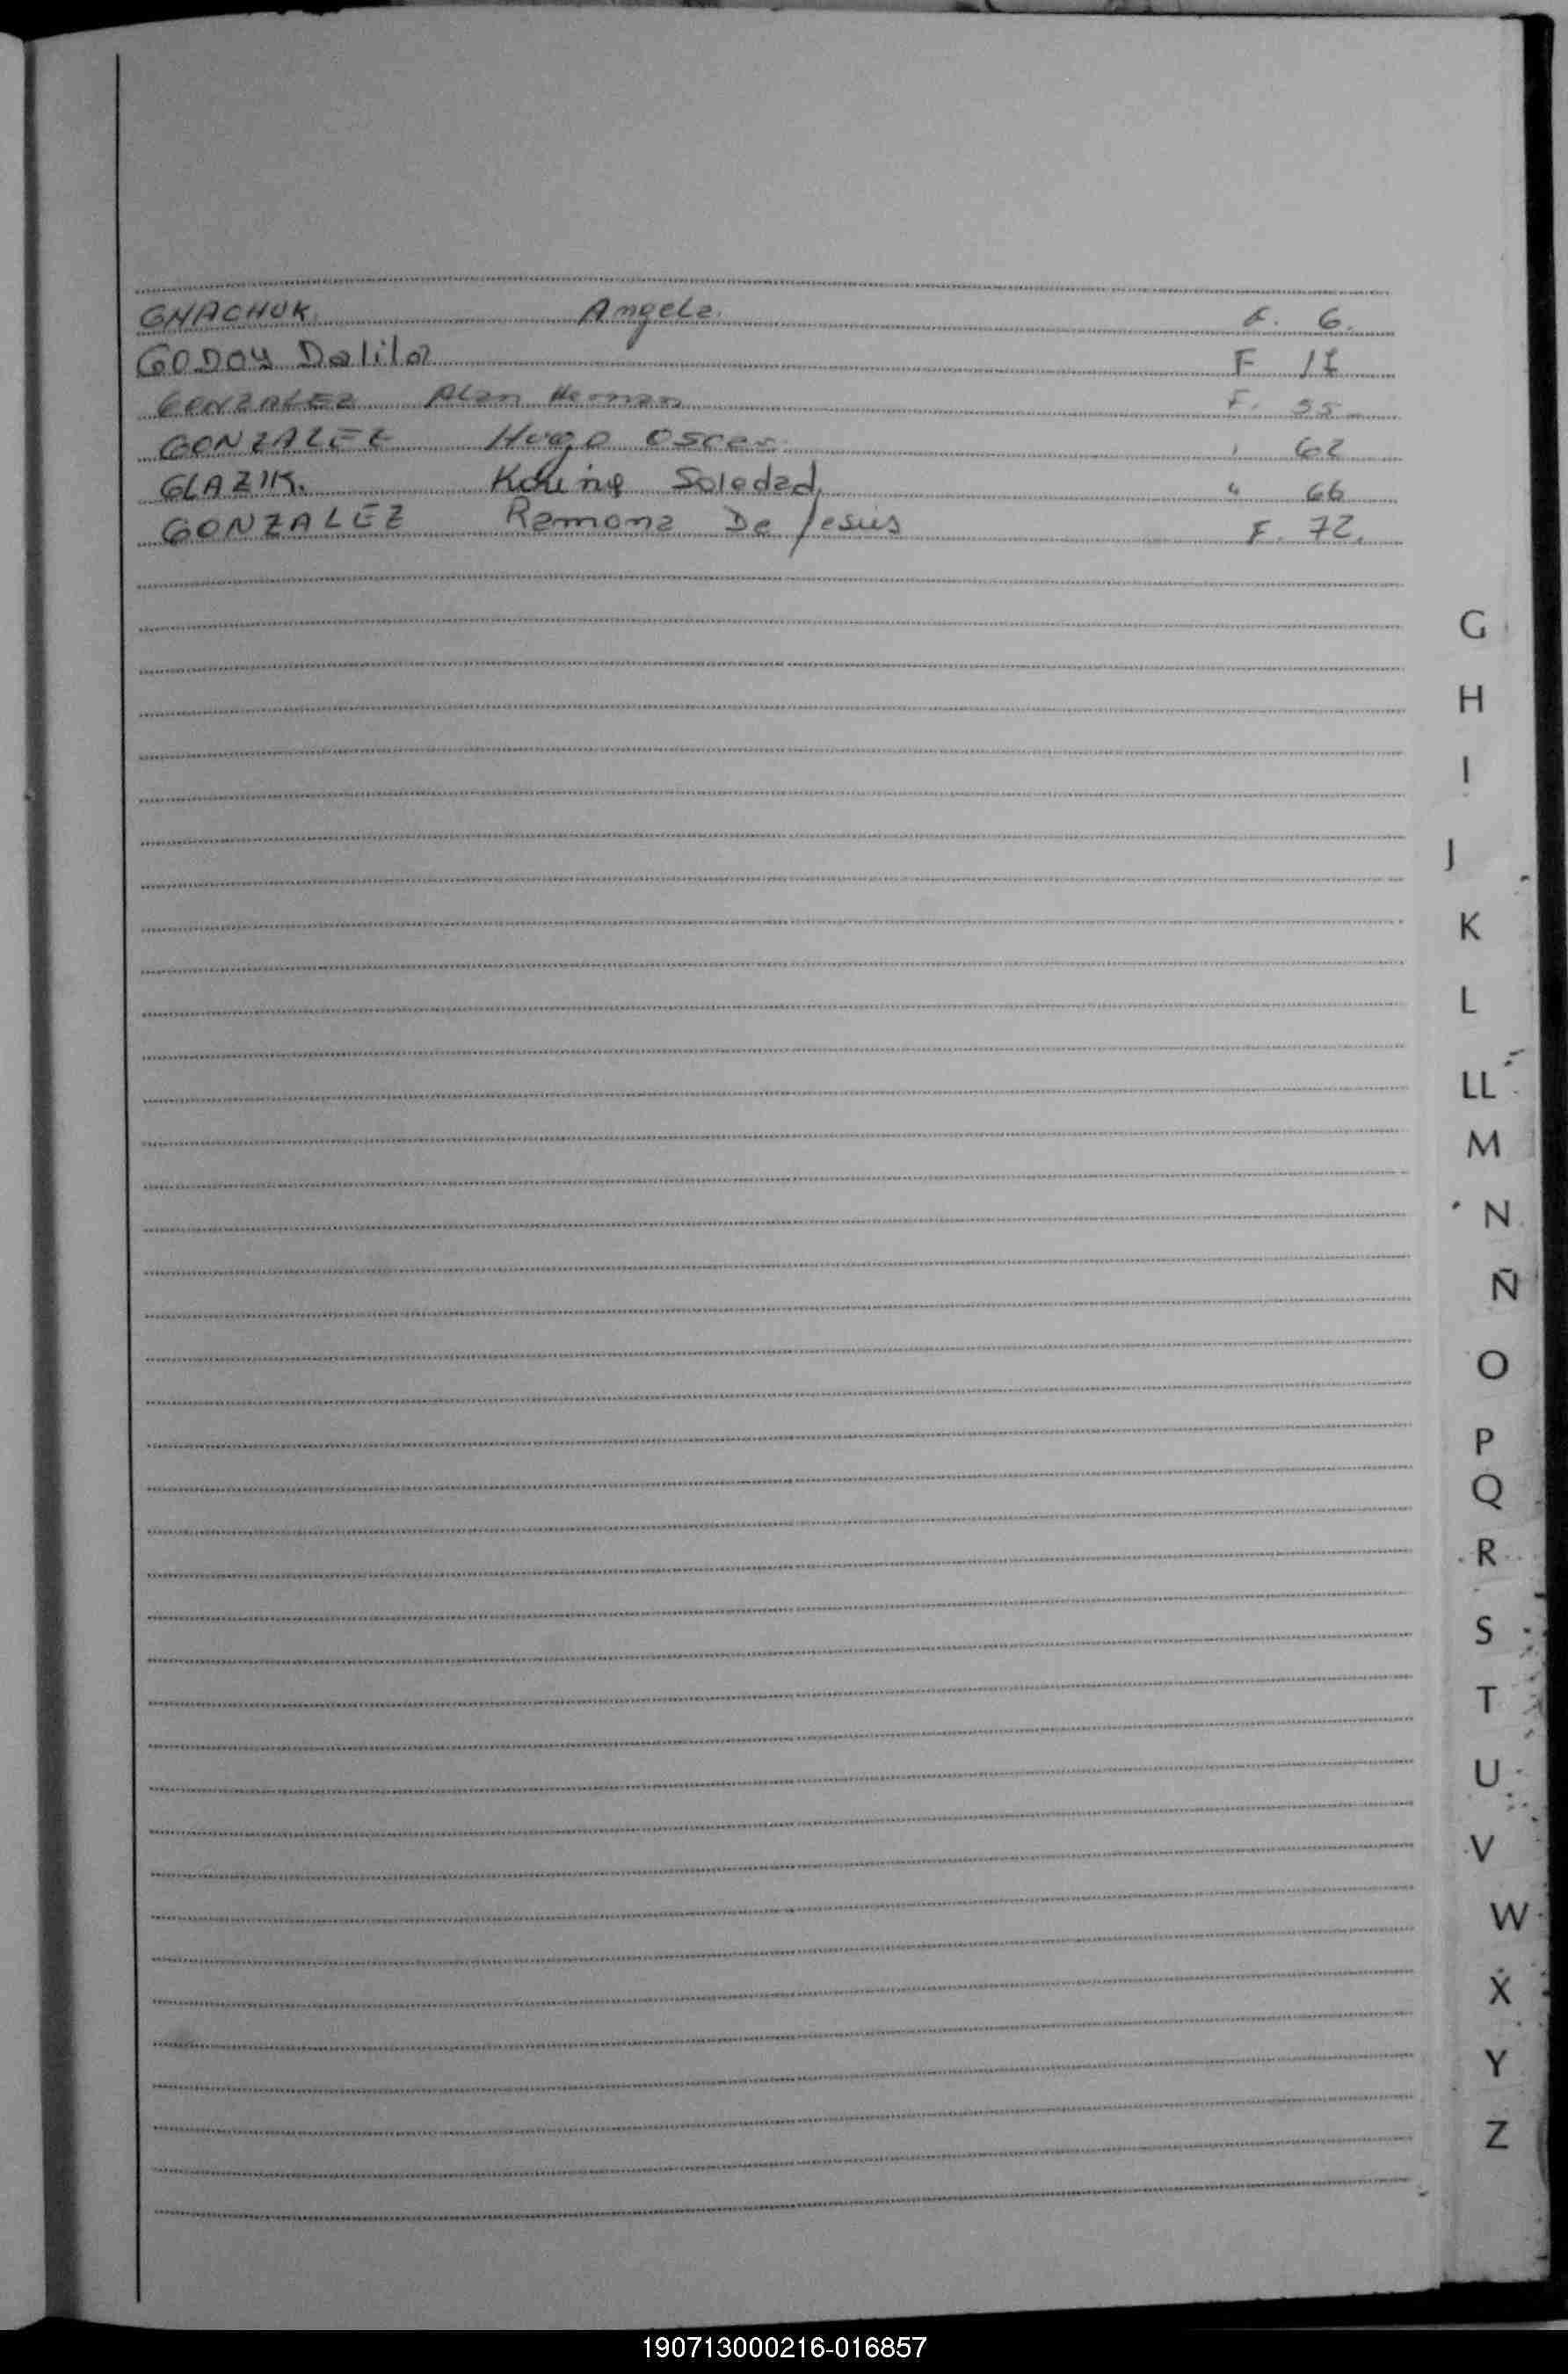 GNACHUK. Angela. F. 6.
GODOY Dalila F 17
GONZALEZ Alan Hernan F. 55
GONZALEZ Hugo Oscar 62
GLAZIK. Soledad " 66
GONZALEZ Ramona De Jesús F. 72.
G
H
I
J
K
L
LL
M
N
Ñ
O
P
Q
R
S
T
U
V
W
X
Y
Z
190713000216-016857